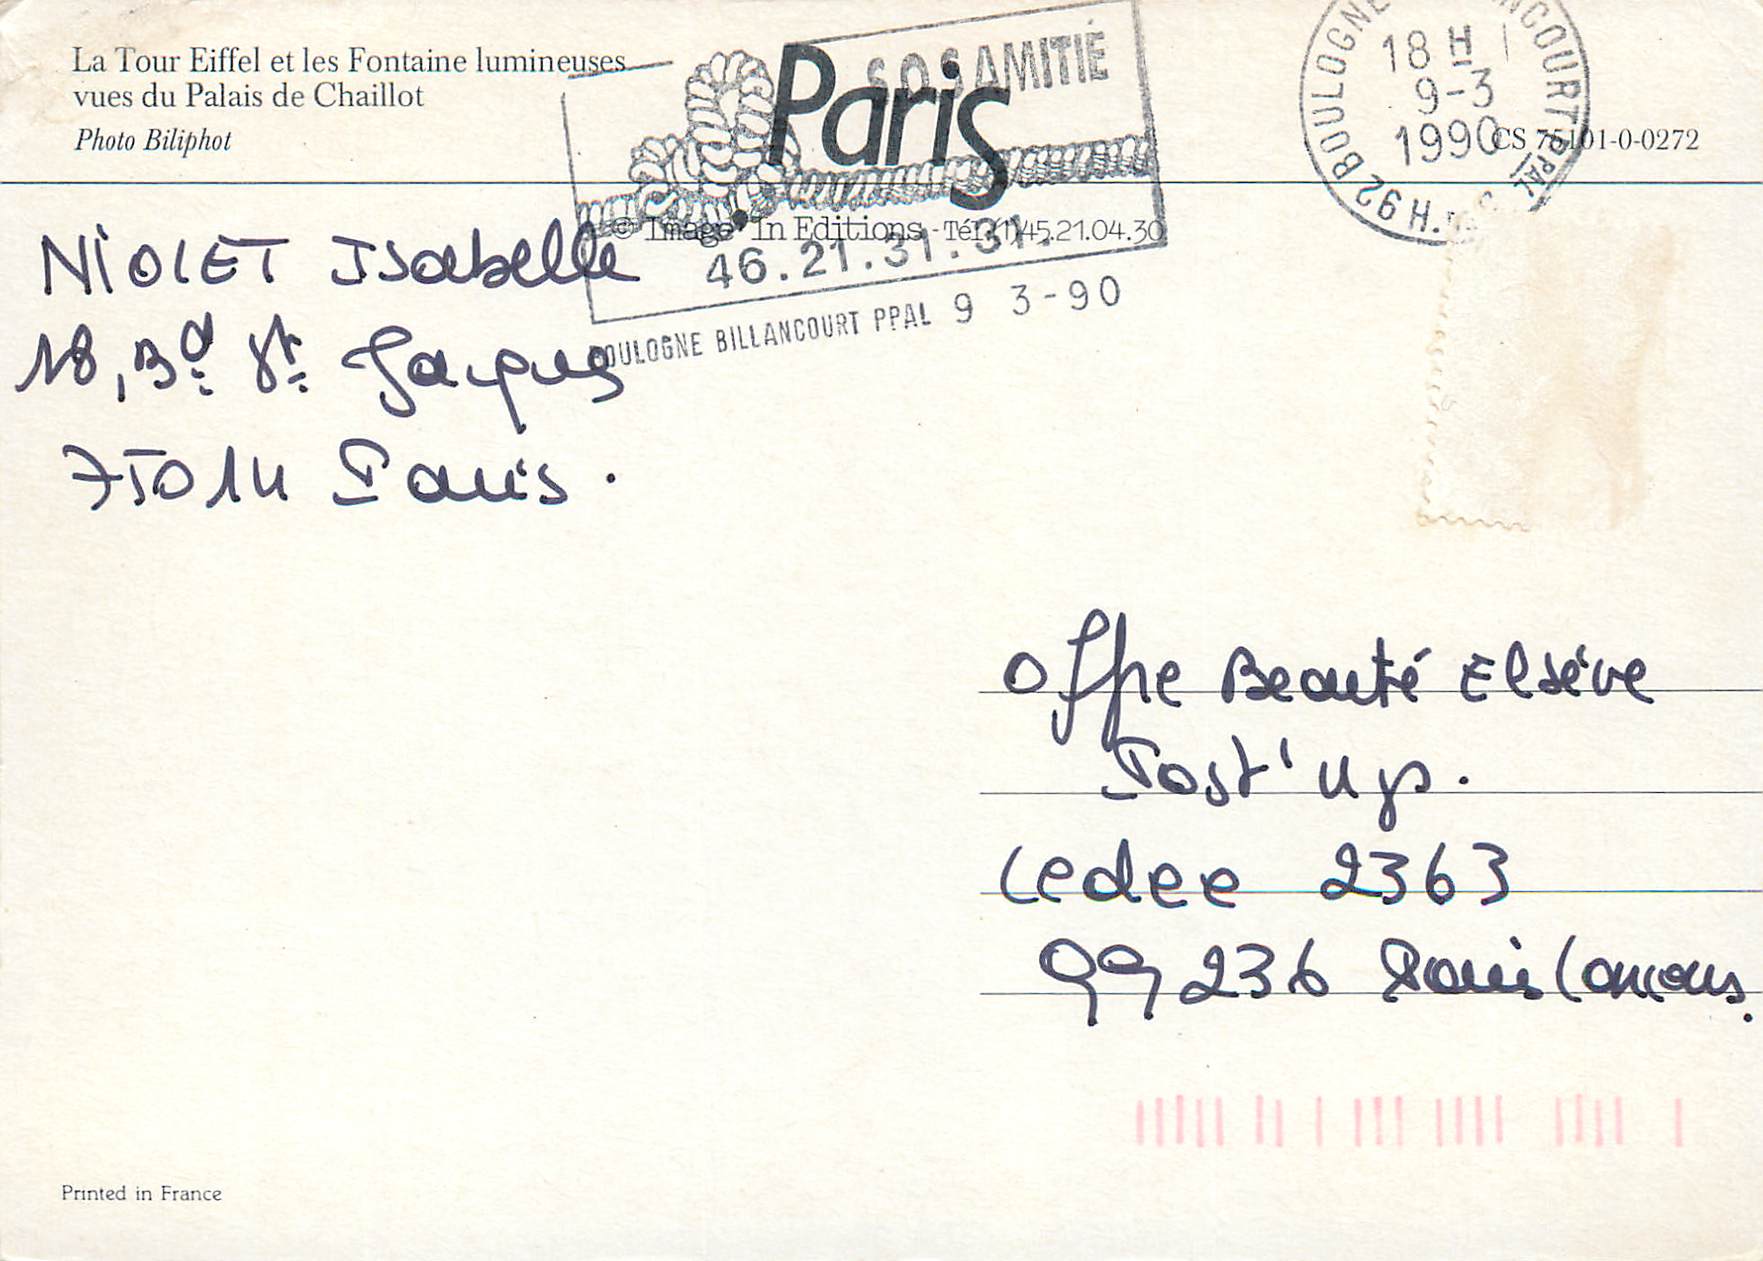 La Tour Eiffel et les Fontaine lumineuses
vues du Palais de Chaillot
Photo Biliphot
Paris
S.O.S AMITIÉ
46.21.31.31.
BOULOGNE BILLANCOURT PPAL 9 3-90
© Image' In Editions - Tél. (1) 45.21.04.30
18 H
9-3
1990
92 BOULOGNE BILLANCOURT PPAL
CS 75101-0-0272
NIOLET Isabelle
18, Bd. St. Jacques
75014 Paris.
Offre Beauté Elsève
Post'Up.
Cedee 2363
99236 Paris Concours.
Printed in France